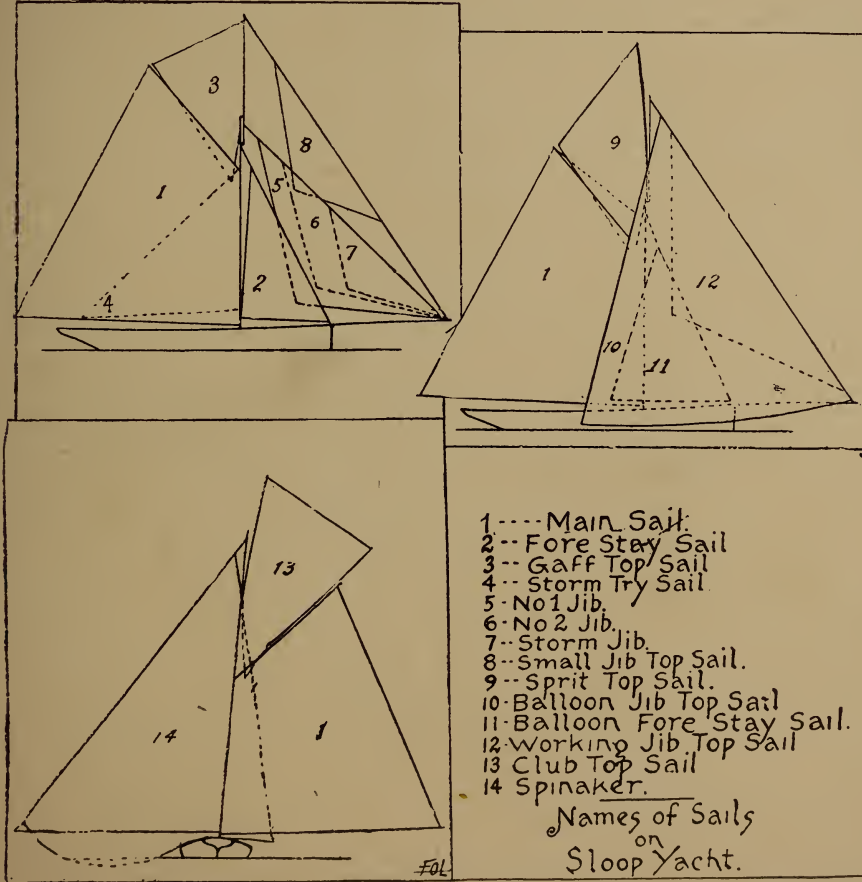 3
8
1
5
6
7
2
4
9
1
12
10
11
13
14
1
1----Main Sail.
2--Fore Stay Sail
3--Gaff Top Sail
4--Storm Try Sail
5-No1 Jib.
6-No2 Jib.
7--Storm Jib.
8--Small Jib Top Sail.
9--Sprit Top Sail.
10-Balloon Jib Top Sail
11-Balloon Fore Stay Sail.
12-Working Jib Top Sail
13 Club Top Sail
14 Spinaker.
Names of Sails
on
Sloop Yacht.
FOL